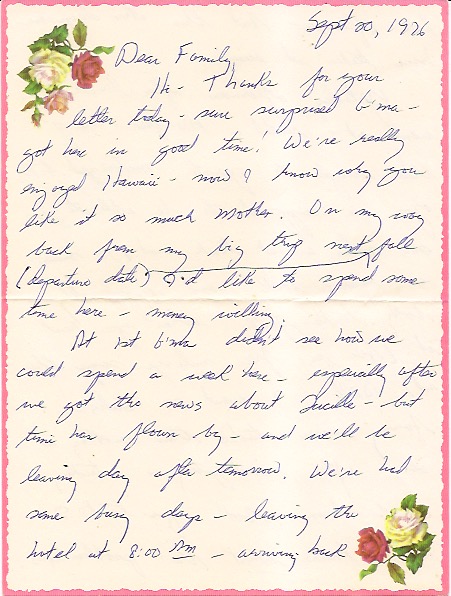 Sept 20, 1976
Dear Family,
Hi - Thanks for your
letter today - sure surprised G'ma -
got here in good time! We're really
enjoyed Hawaii - now I know why you
like it so much Mother. On my way
back from my big trip next fall
(departure date) I'd like to spend some
time here - money willing.
At 1st G'ma didn't see how we
could spend a week here - especially after
we got the news about Lucille - but
time has flown by - and we'll be
leaving day after tomorrow. We've had
some busy days - leaving the
hotel at 8:00 AM - arriving back